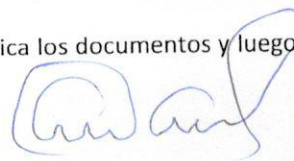 ica los documentos y luego